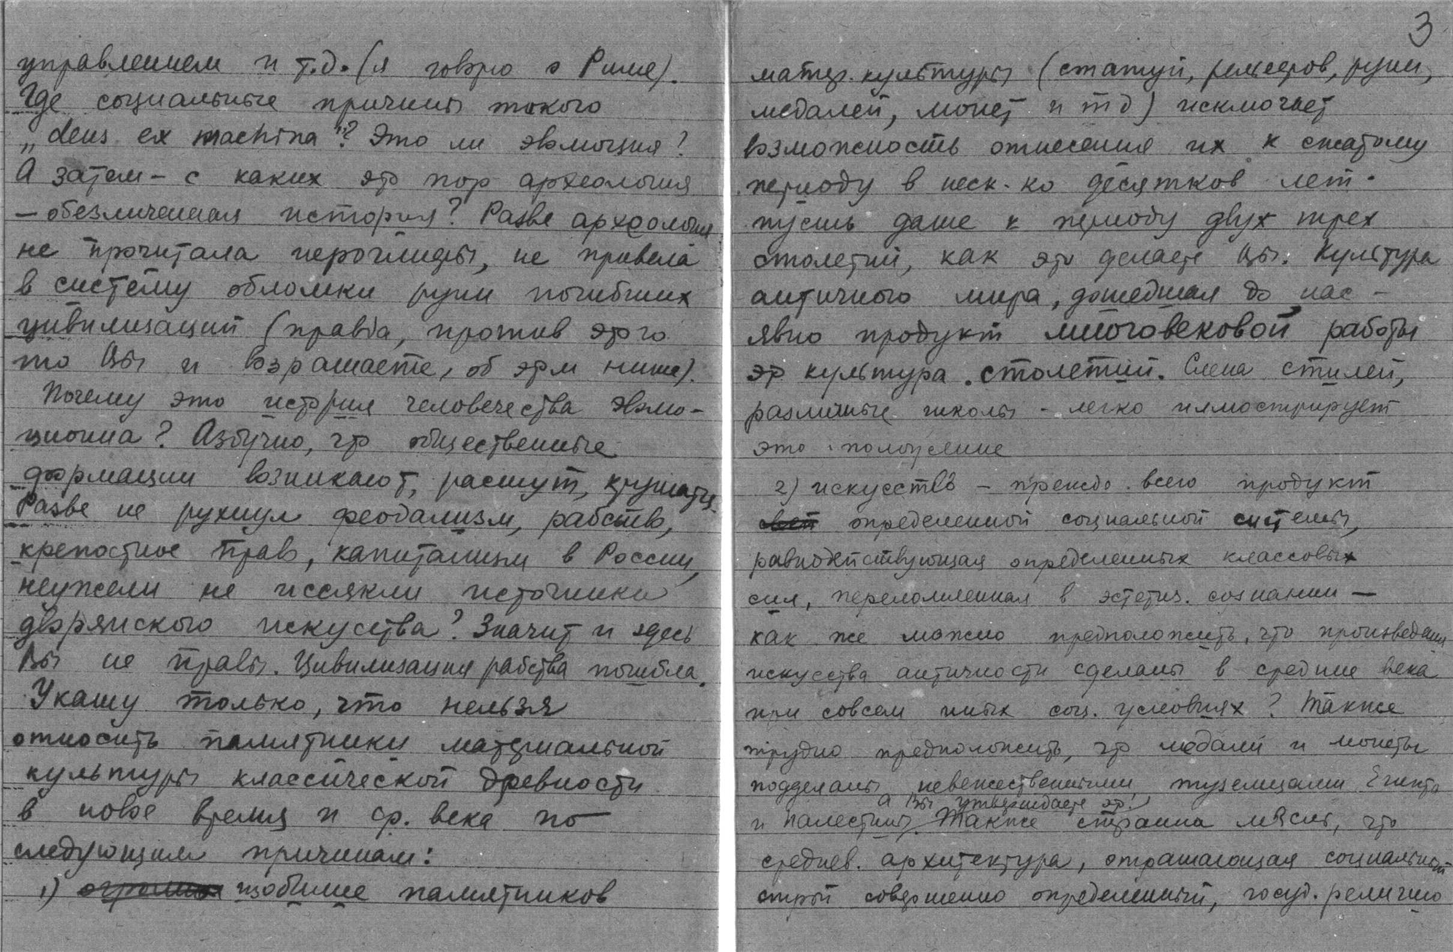 управлением и т.д. (я говорю о Риме).
Где социальные причины такого
„deus ex machina"? Это ли эволюция?
А затем – с каких это пор археология
– обезличенная история? Разве археология
не прочитала иероглифы, не привела
в систему обломки руин погибших
цивилизаций (правда, против этого
то Вы и возражаете, об этом ниже).
Почему это история человечества эволю-
ционна? Азбучно, что общественные
формации возникают, растут, крушатся.
Разве не рухнул феодализм, рабство,
крепостное право, капитализм в России,
неужели не иссякли источники
дворянского искусства? Значит и здесь
Вы не правы. Цивилизация рабства погибла.
Укажу только, что нельзя
относить памятники материальной
культуры классической древности
в новое время и ср. века по
следующим причинам:
1) огромное изобилие памятников
3
матер. культуры (статуй, рельефов, руин,
медалей, монет и т д) исключает
возможность отнесения их к сжатому
периоду в неск-ко десятков лет.
пусть даже к периоду двух трех
столетий, как это делаете Вы. Культура
античного мира, дошедшая до нас –
явно продукт многовековой работы
это культура столетий. Смена стилей,
различные школы – легко иллюстрирует
это положение
2) искусство – прежде всего продукт
определенной социальной системы,
равнодействующая определенных классовых
сил, переломленная в эстетич. сознании –
как же можно предположить, что произведения
искусства античности сделаны в средние века
при совсем иных соц. условиях? Также
трудно предположить, что медали и монеты
подделаны невежественными туземцами Египта
а Вы утверждаете это!
и Палестины. Также странна мысль, что
среднев. архитектура, отражающая социальный
строй совершенно определенный, госуд. религию